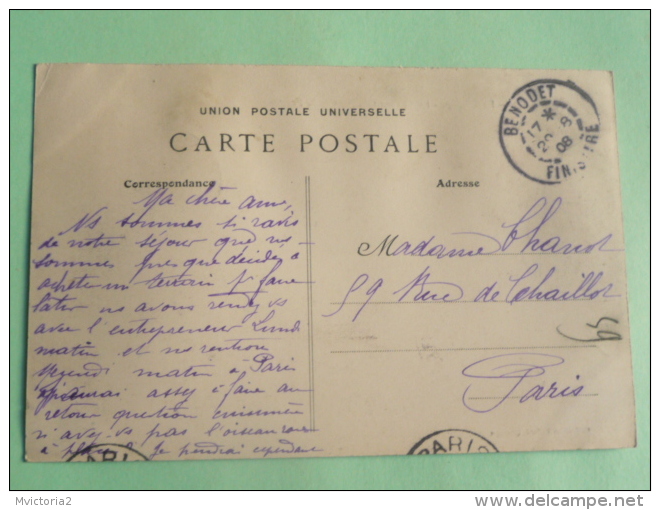 UNION POSTALE UNIVERSELLE
CARTE POSTALE
BENODET
17 *
8
08
FINISTERE
Correspondance
Adresse
Ma chère amie,
Ns sommes si ravis
de notre séjour que ns
sommes presque décidés à
acheter un terrain pr faire
bâtir ns avons rendez vs
avec l'entrepreneur Lundi
matin et ns rentrons
matin à Paris
assez à faire au
retour question
si avez-vs pas l'oiseau
à Je prendrai cependant
Madame Chanot
59 Rue de Chaillot
Paris
PARIS
PARIS
Mvictoria2
delcampe.net